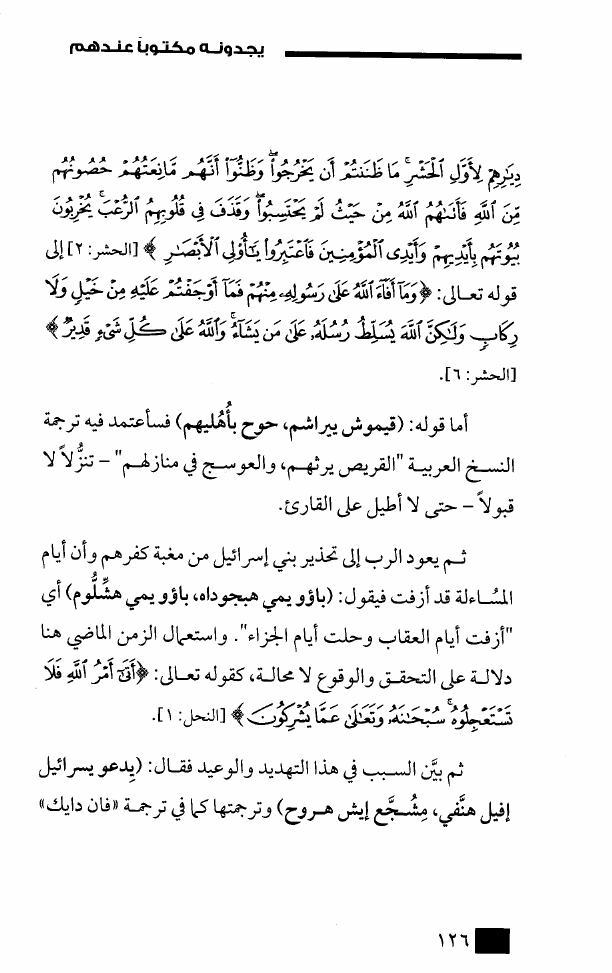 يجدونه مكتوباً عندهم
دِيَٰرِهِمْ لِأَوَّلِ ٱلْحَشْرِ ۚ مَا ظَنَنتُمْ أَن يَخْرُجُوا۟ ۖ وَظَنُّوٓا۟ أَنَّهُم مَّانِعَتُهُمْ حُصُونُهُم
مِّنَ ٱللَّهِ فَأَتَىٰهُمُ ٱللَّهُ مِنْ حَيْثُ لَمْ يَحْتَسِبُوا۟ ۖ وَقَذَفَ فِى قُلُوبِهِمُ ٱلرُّعْبَ ۚ يُخْرِبُونَ
بُيُوتَهُم بِأَيْدِيهِمْ وَأَيْدِى ٱلْمُؤْمِنِينَ فَٱعْتَبِرُوا۟ يَٰٓأُو۟لِى ٱلْأَبْصَٰرِ ﴾ [الحشر: ٢] إلى
قوله تعالى: ﴿ وَمَآ أَفَآءَ ٱللَّهُ عَلَىٰ رَسُولِهِۦ مِنْهُمْ فَمَآ أَوْجَفْتُمْ عَلَيْهِ مِنْ خَيْلٍ وَلَا
رِكَابٍ وَلَٰكِنَّ ٱللَّهَ يُسَلِّطُ رُسُلَهُۥ عَلَىٰ مَن يَشَآءُ ۚ وَٱللَّهُ عَلَىٰ كُلِّ شَىْءٍ قَدِيرٌ ﴾
[الحشر: ٦].
أما قوله: (قيموش ييراشم، حوح بأُهليهم) فسأعتمد فيه ترجمة
النسخ العربية "القريص يرثهم، والعوسج في منازلهم" – تنزُّلاً لا
قبولاً – حتى لا أطيل على القارئ.
ثم يعود الرب إلى تحذير بني إسرائيل من مغبة كفرهم وأن أيام
المُساءلة قد أزفت فيقول: (باؤو يمي هبجوداه، باؤو يمي هشِّلُّوم) أي
"أزفت أيام العقاب وحلت أيام الجزاء". واستعمال الزمن الماضي هنا
دلالة على التحقق والوقوع لا محالة، كقوله تعالى: ﴿ أَتَىٰٓ أَمْرُ ٱللَّهِ فَلَا
تَسْتَعْجِلُوهُ ۚ سُبْحَٰنَهُۥ وَتَعَٰلَىٰ عَمَّا يُشْرِكُونَ ﴾ [النحل: ١].
ثم بيَّن السبب في هذا التهديد والوعيد فقال: (يِدعو يسرائيل
إفيل هنَّفي، مِشُجَّع إيش هروح) وترجمتها كما في ترجمة «فان دايك»
١٢٦